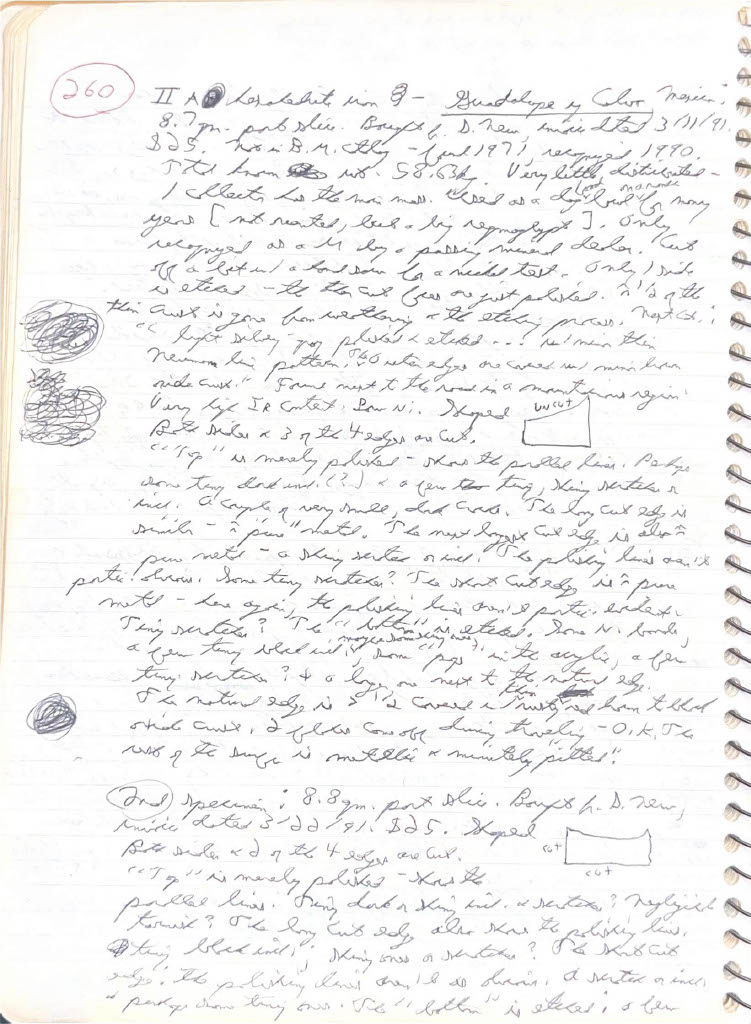 260
II A hexahedrite iron - Guadalupe y Calvo, Mexico.
8.7 gm. part slice. Bought fr. D. New, invoice dated 3/11/91.
$25. Not in B. M. ctlg - found 1971, recognized 1990.
Total known wt. 58.63 kg. Very little distributed -
1 collector has the main mass. Used as a dog food bowl for many
years [not rusted, but a big regmaglypt]. Only
recognized as a M by a passing mineral dealer. Cut
off a bit w/ a hand saw for a nickel test. Only 1 side
is etched - the other cut faces are just polished. 1/2 of the
thin crust is gone from weathering & the etching process. Next Cat.:
"light silvery-gray polished & etched ... w/ main thin
Neumann line pattern. The outer edges are covered w/ brown
oxide crust." Found next to the road in a mountainous region.
Very high Ir content. Low Ni. Shaped UNCUT
Both sides & 3 of the 4 edges are cut.
"Top" is merely polished - shows the parallel lines. Perhaps
some tiny dark incl. (?) & a few tiny, shiny scratches or
incl. A couple of very small, dark cracks. The long cut edge is
similar - "pure" metal. The next longest cut edge is also
pure metal - a shiny scratch or incl. The polishing lines aren't
partic. obvious. Some tiny scratches? The short cut edge is pure
metal - here again, the polishing lines aren't partic. evident.
Tiny scratches? The "bottom" is etched. Some Ni. bands,
a few tiny black incl., maybe some shiny ones, some "pigs" in the acrylic, a few
tiny scratches? & a large one next to the natural edge.
The natural edge is covered in thin rusty red brown to black
oxide crust. 2 flakes came off during traveling - O.K. The
rest of the surface is metallic & minutely "pitted".
2nd specimen: 8.8 gm. part slice. Bought fr. D. New,
invoice dated 3/22/91. $25. Shaped
Both sides & 2 of the 4 edges are cut. cut
cut
"Top" is merely polished - shows the
parallel lines. Tiny dark or shiny incl. or scratches? Negligible
tarnish? The long cut edge also shows the polishing lines.
tiny black incl.; shiny ones or scratches? The short cut
edge: the polishing lines aren't as obvious. A scratch or incl.
& perhaps some tiny ones. The "bottom" is etched: a few